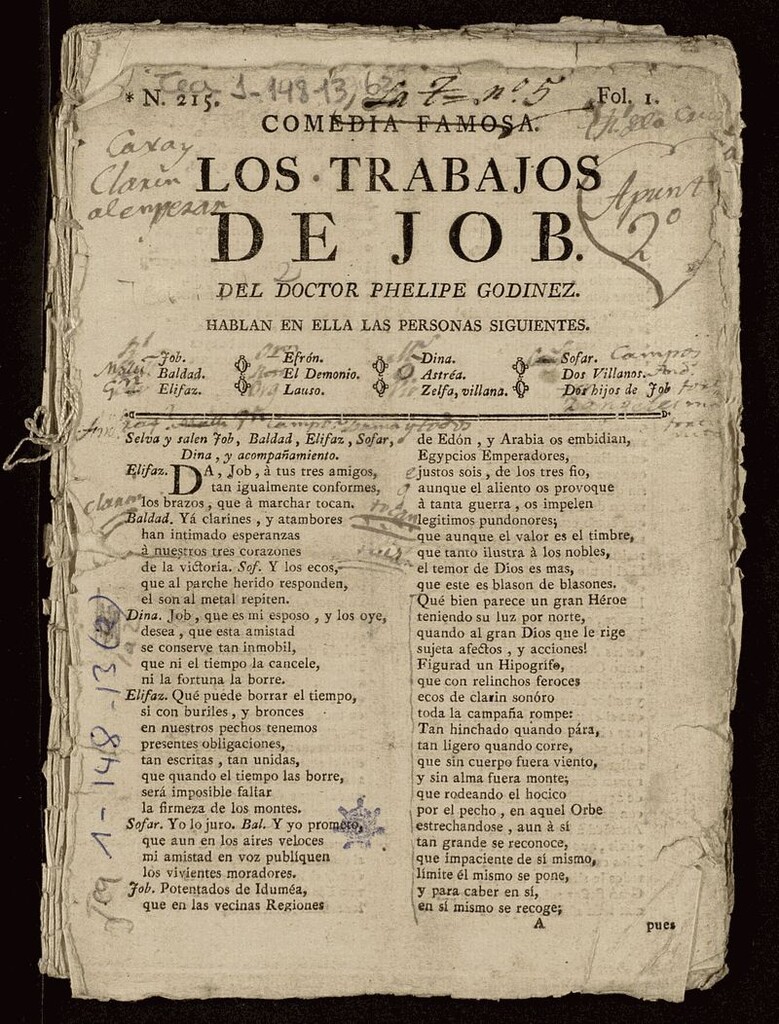 Tea 1-148-13, 
La 7ª nº 5
* N. 215. Fol. 1.
COMEDIA FAMOSA.
Caxa y
Clarin
al enpezar
LOS TRABAJOS
DE JOB.
Apunt
2º
DEL DOCTOR PHELIPE GODINEZ.
HABLAN EN ELLA LAS PERSONAS SIGUIENTES.
Job. Efrón. Dina. Sofar. Campos
Baldad. El Demonio. Astréa. Dos Villanos.
Elifaz. Lauso. Zelfa, villana. Dos hijos de Job
Selva y salen Job, Baldad, Elifaz, Sofar,
Dina, y acompañamiento.
Elifaz. DA, Job, à tus tres amigos,
tan igualmente conformes,
clarin
los brazos, que à marchar tocan.
Baldad. Yá clarines, y atambores
han intimado esperanzas
à nuestros tres corazones
de la victoria. Sof. Y los ecos,
que al parche herido responden,
el son al metal repiten.
Dina. Job, que es mi esposo, y los oye,
desea, que esta amistad
se conserve tan inmobil,
que ni el tiempo la cancele,
ni la fortuna la borre.
Elifaz. Qué puede borrar el tiempo,
si con buriles, y bronces
en nuestros pechos tenemos
presentes obligaciones,
tan escritas, tan unidas,
que quando el tiempo las borre,
será imposible faltar
la firmeza de los montes.
Sofar. Yo lo juro. Bal. Y yo prometo,
que aun en los aires veloces
mi amistad en voz publiquen
los vivientes moradores.
Job. Potentados de Iduméa,
que en las vecinas Regiones
de Edón, y Arabia os embidian,
Egypcios Emperadores,
justos sois, de los tres fio,
aunque el aliento os provoque
à tanta guerra, os impelen
legitimos pundonores;
que aunque el valor es el timbre,
que tanto ilustra à los nobles,
el temor de Dios es mas,
que este es blason de blasones.
Qué bien parece un gran Héroe
teniendo su luz por norte,
quando al gran Dios que le rige
sujeta afectos, y acciones!
Figurad un Hipogrifo,
que con relinchos feroces
ecos de clarin sonóro
toda la campaña rompe:
Tan hinchado quando pára,
tan ligero quando corre,
que sin cuerpo fuera viento,
y sin alma fuera monte;
que rodeando el hocico
por el pecho, en aquel Orbe
estrechandose, aun à sí
tan grande se reconoce,
que impaciente de sí mismo,
límite él mismo se pone,
y para caber en sí,
en sí mismo se recoge;
A pues
Tea 1-148-13 (a)